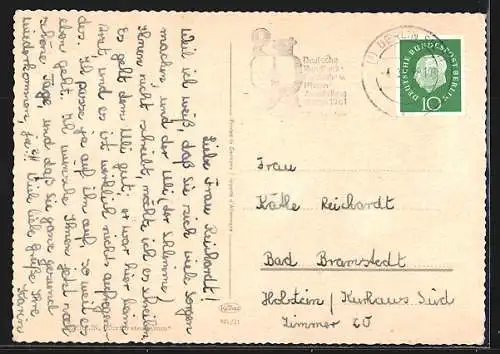 Liebe Frau Reichardt!
Weil ich weiß, daß Sie sich viele Sorgen
machen, und der Uli (der Schlimme)
Ihnen nicht schreibt, möchte ich es tun.
Es geht dem Uli gut; er war hier beim
Arzt, und es ist wirklich nicht aufregen-
des. Ich passe ja auf ihn auf, so weit es
eben geht. Ich wünsche Ihnen jetzt noch
schöne Tage, und daß Sie ganz gesund
wiederkommen, ja?! Viele liebe Grüße Ihre
Karin
BERLIN
Deutsche
1961
DEUTSCHE BUNDESPOST BERLIN
10
Frau
Käthe Reichardt
Bad Bramstedt
Holstein / Kurhaus Süd
Zimmer 20